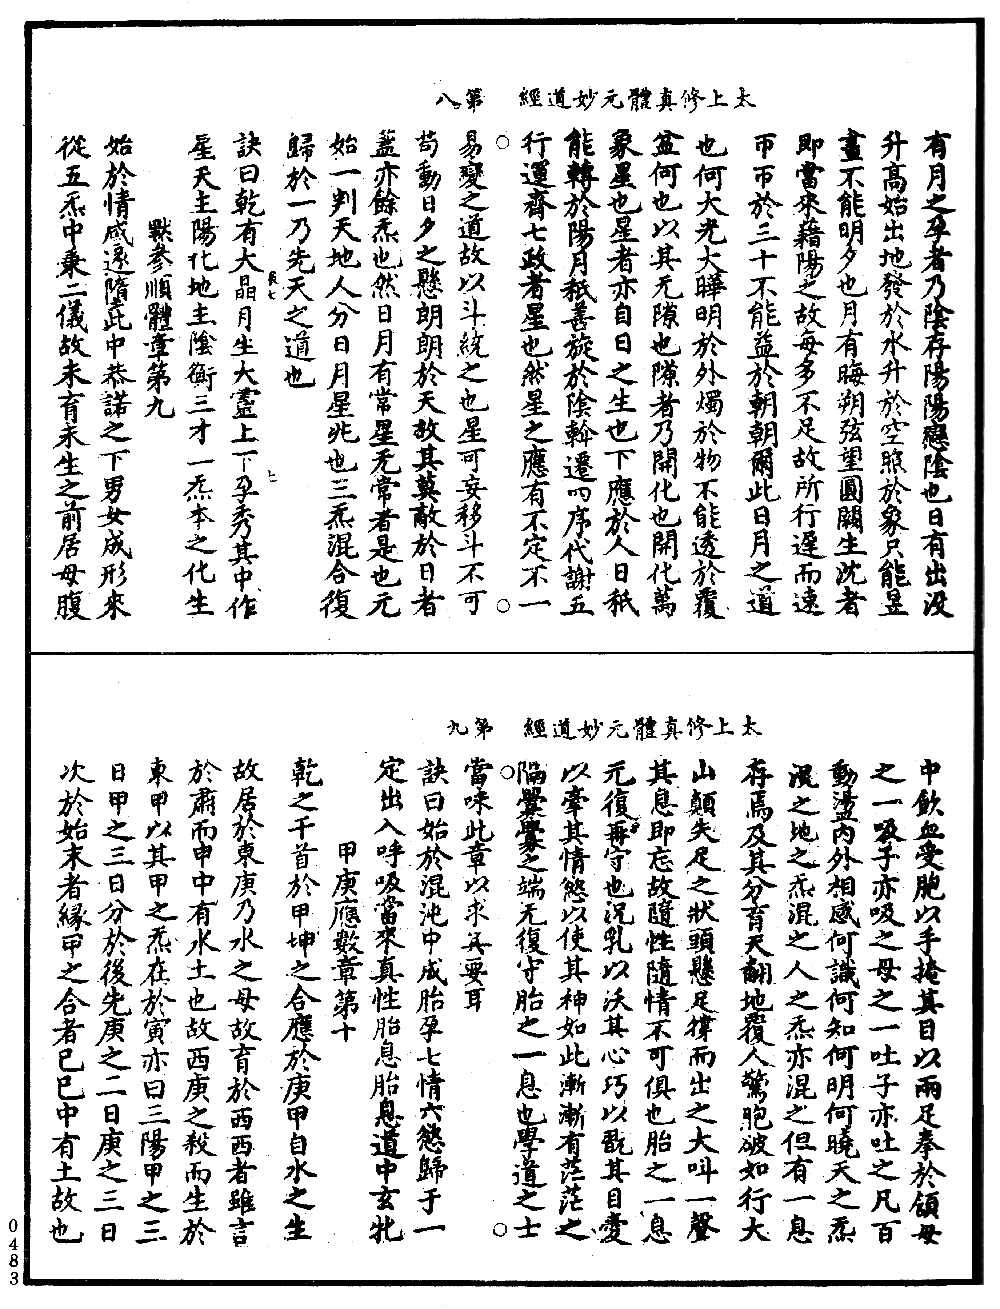 太上修真體元妙道經　第八
有月之孕者乃陰存陽陽戀陰也日有出没
升高始出地發於水升於空照於象只能昱
晝不能明夕也月有晦朔弦望圓闕生沈者
即當來藉陽之故每多不足故所行遲而速
帀帀於三十不能益於朝朝爾此日月之道
也何大光大曄明於外燭於物不能透於覆
盆何也以其无隙也隙者乃開化也開化萬
象星也星者亦自日之生也下應於人日秪
能轉於陽月秪善旋於陰斡遷四序代謝五
行運齊七政者星也然星之應有不定不一
易變之道故以斗統之也星可妄移斗不可
苟動日夕之懸朗朗於天故其莫敵於日者
蓋亦餘炁也然日月有常星无常者是也元
始一判天地人分日月星兆也三炁混合復
歸於一乃先天之道也
訣曰乾有大晶月生大靈上下孕秀其中作
星天主陽化地主陰衡三才一炁本之化生
默參順體章第九
始於情感遂隨此中恭諾之下男女成形來
從五炁中秉二儀故未育未生之前居母腹
太上修真體元妙道經　第九
中飲血受胞以手掩其目以兩足拳於頷母
之一吸子亦吸之母之一吐子亦吐之凡百
動盪内外相感何識何知何明何曉天之炁
混之地之炁混之人之炁亦混之但有一息
存焉及其分育天翻地覆人驚胞破如行大
山顛失足之狀頭懸足撑而出之大叫一聲
其息即忘故隨性隨情不可俱也胎之一息
元復再守也況乳以沃其心巧以翫其目愛
以牽其情慾以使其神如此漸漸有茫茫之
陷釁釁之端无復守胎之一息也學道之士
當味此章以求其要耳
訣曰始於混沌中成胎孕七情六慾歸于一
定出入呼吸當來真性胎息胎息道中玄牝
甲庚應數章第十
乾之千首於甲坤之合應於庚甲自水之生
故居於東庚乃水之母故育於西西者雖言
於肅而申中有水土也故西庚之殺而生於
東甲以其甲之炁在於寅亦曰三陽甲之三
日甲之三日分於後先庚之二日庚之三日
次於始末者緣甲之合者巳巳中有土故也
0483